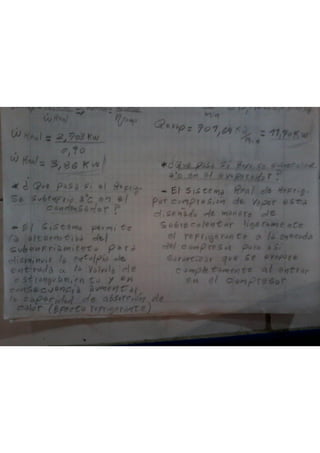 Ẇ Real = 2,703 Kw
0,90
Ẇ Real = 3,86 Kw
* ¿ Que pasa si el Refrig.
se subenfría 2°c en el
condensador ?
- El sistema permite
la alternativa del
subenfriamiento para
disminuir la entalpía de
entrada a la valvula de
estrangulamiento y en
consecuencia aumentar
la capacidad de absorción de
calor (efecto refrigerante)
Qevap = 707,64 KJ = 11,70 Kw
min
* ¿ Que pasa si
2°c en el evaporador ?
- El sistema Real de Refrig.
por compresion de vapor esta
diseñado de manera de
sobrecalentar ligeramente
el refrigerante a la entrada
del compresor para asi
garantizar que se evapore
completamente al entrar
en el compresor